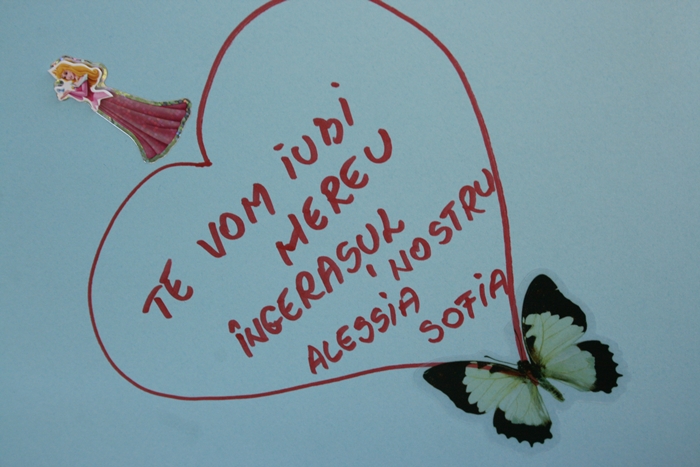 TE VOM IUBI
MEREU
ÎNGERAȘUL NOSTRU
ALESSIA
SOFIA